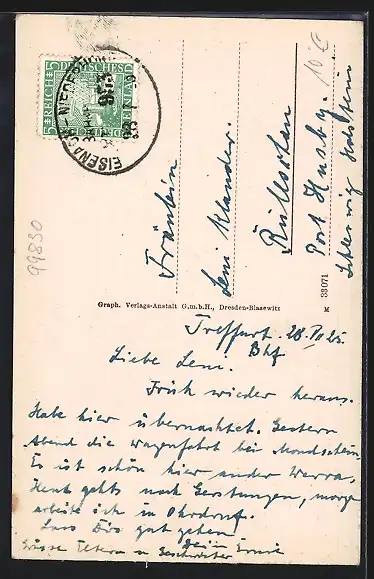 5 DEUTSCHES 5
REICH
EISENACH-NIEDERHONE
BAHNPOST
953
28 7
10 €
99830
Fräulein
Leni Klander.
Rüllsoten
Post Husby.
Schleswig Holstein
Graph. Verlags-Anstalt G.m.b.H., Dresden-Blasewitz
M 33071
Treffurt. 28.VII 25.
Bhf
Liebe Leni.
Früh wieder heraus.
Habe hier übernachtet. Gestern
Abend die Wagenfahrt bei Mondschein
Es ist schön hier an der Werra.
Heut gehts nach Gerstungen, morgen
arbeite ich in Ohrdruf.
Lass Dirs gut gehen
Dein Ernie
Grüsse Eltern u Geschwister